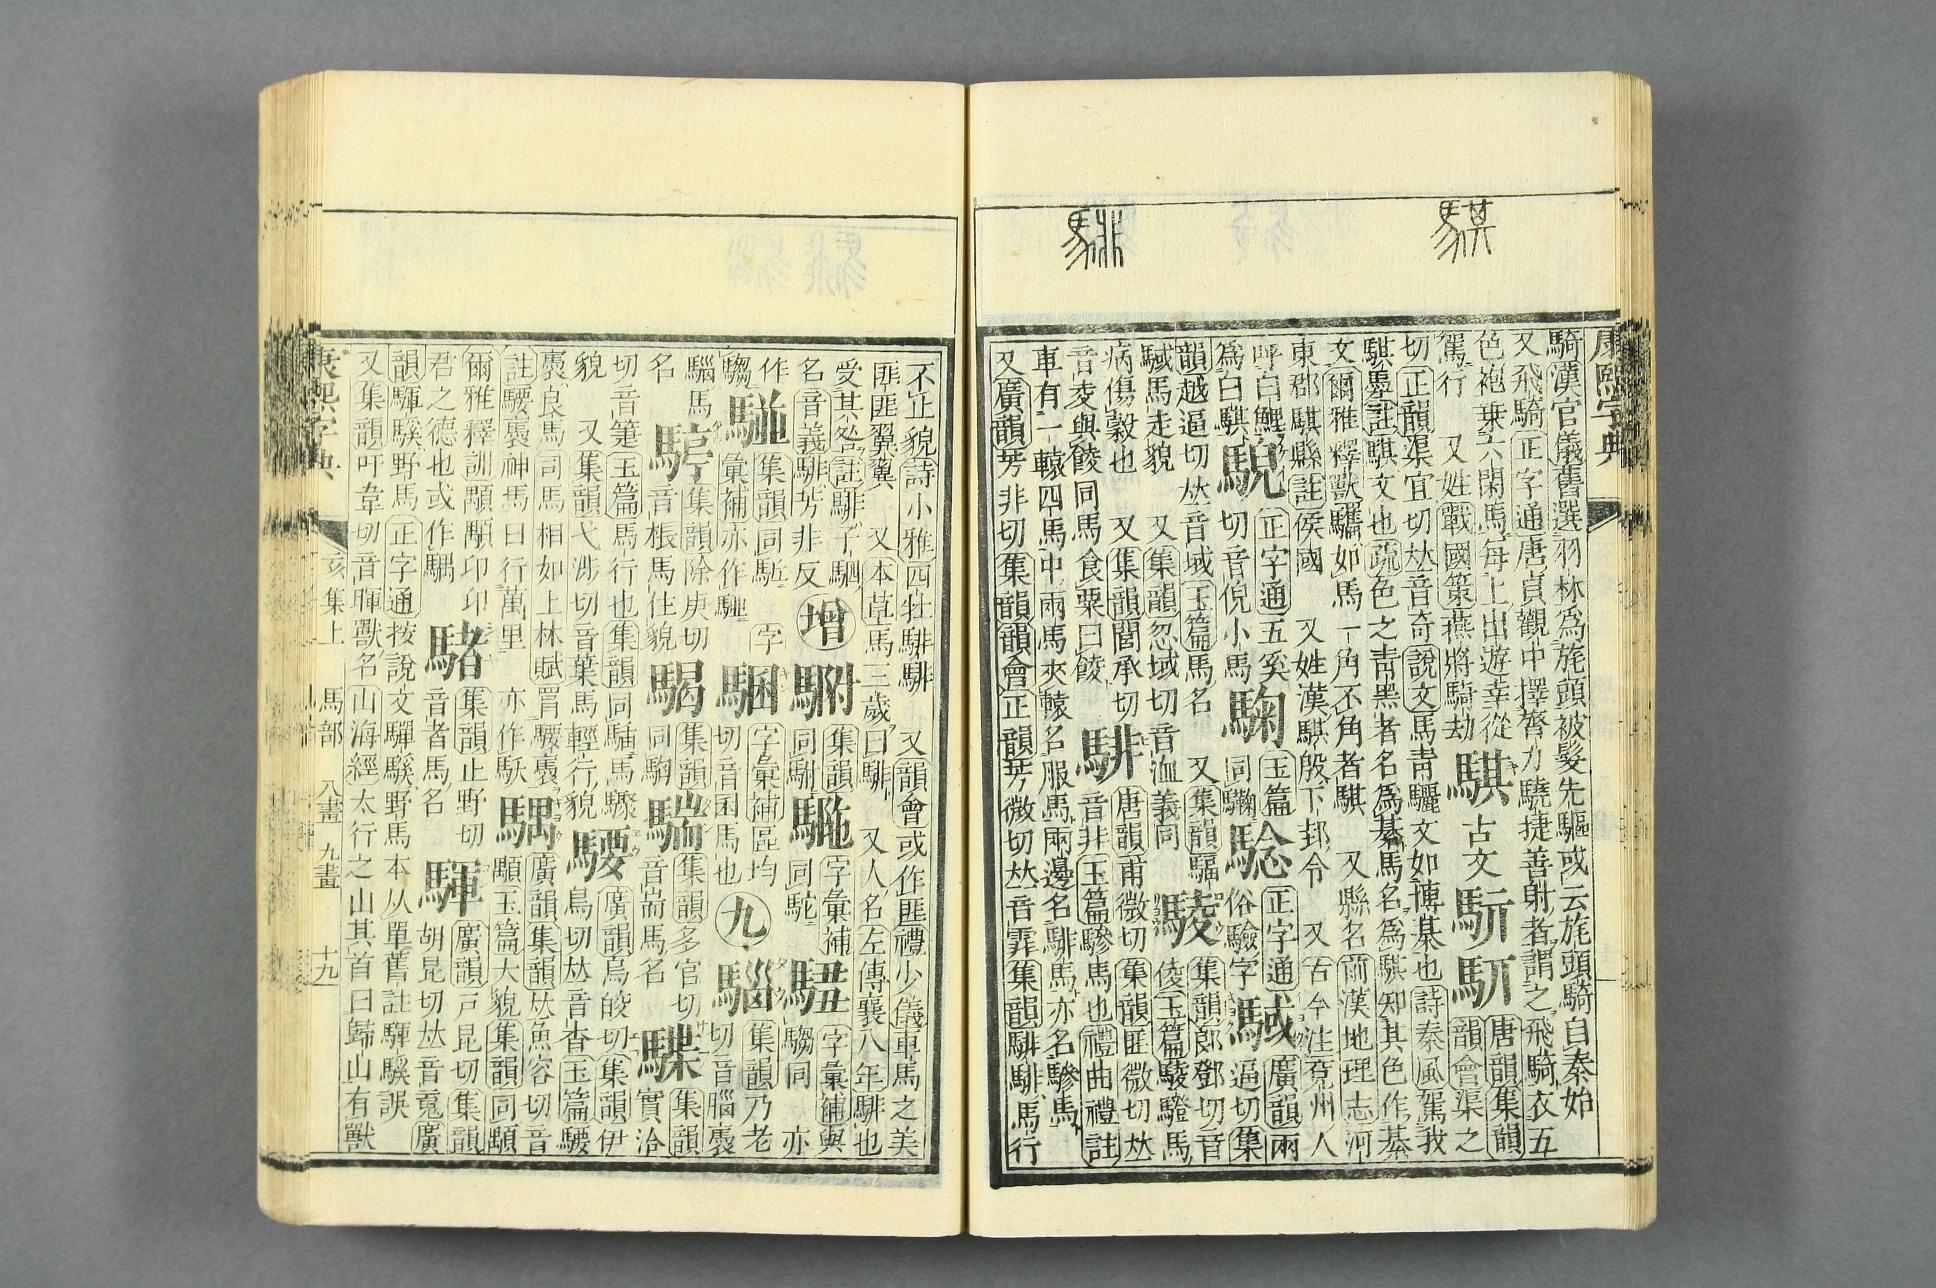 康熙字典
騎漢官儀舊選羽林為旄頭被髮先驅或云旄頭騎自秦始
又飛騎正字通唐貞觀中擇膂力驍捷善射者謂之飛騎衣五
色袍乗六閑馬每上出遊幸從
駕行 又姓戰國策燕將騎劫
騏 古文 唐韻集韻韻會渠之
切正韻渠宜切𠀤音奇說文馬靑驪文如博棊也詩秦風駕我
騏馵註騏文也疏色之靑黑者名為綦馬名為騏知其色作綦
文爾雅釋獸驨如馬一角不角者騏 又縣名前漢地理志河
東郡騏縣註侯國 又姓漢騏殷下邳令 又古今注兗州人
呼白鯉為白騏
正字通五奚切音倪小馬
玉篇同驧
騐 正字通俗驗字
䮙 廣韻雨逼切集
韻越逼切𠀤音域玉篇馬名 又集韻
䮙馬走貌 又集韻忽域切音洫義同
䮚 集韻郎鄧切音倰玉篇馬
病傷穀也 又集韻閭承切
音夌與餕同馬食粟曰餕
騑 唐韻甫微切集韻匪微切𠀤音非玉篇驂馬也禮曲禮註
車有一轅四馬中兩馬夾轅名服馬兩邊名騑馬亦名驂馬
又廣韻芳非切集韻韻會正韻芳微切𠀤音霏集韻騑騑馬行
不止貌詩小雅四牡騑騑 又韻會或作匪禮少儀車馬之美
匪匪翼翼 又本草馬三歲曰騑 又人名左傳襄八年騑也
受其咎註騑子駟
名音義騑芳非反
增
集韻同駙
字彙補同駝
字彙補與騶同 亦作
集韻同 字彙補亦作
字彙補區均切音囷馬也
九
集韻乃老切音腦裊馬名
集韻除庚切音棖馬住貌
騔 集韻同
集韻多官切音耑馬名
集韻實洽
切音箑玉篇馬行也集韻同 馬驟
貌 又集韻弋涉切音葉馬輕行貌
騕 廣韻烏皎切集韻伊鳥切𠀤音杳玉篇騕
褭良馬司馬相如上林賦罥騕褭
註騕褭神馬日行萬里 亦作駚
廣韻集韻𠀤魚容切音顒玉篇大貌集韻同顒
爾雅釋訓顒顒卬卬
君之德也或作
集韻止野切音者馬名
騨 廣韻戸昆切集韻胡昆切𠀤音䰟廣
韻騨騱野馬正字通按說文驒騱野馬本从單舊註騨騱誤
又集韻吁韋切音暉獸名山海經太行之山其首曰歸山有獸
康熙字典 亥集上 馬部 八畫 九畫 十九